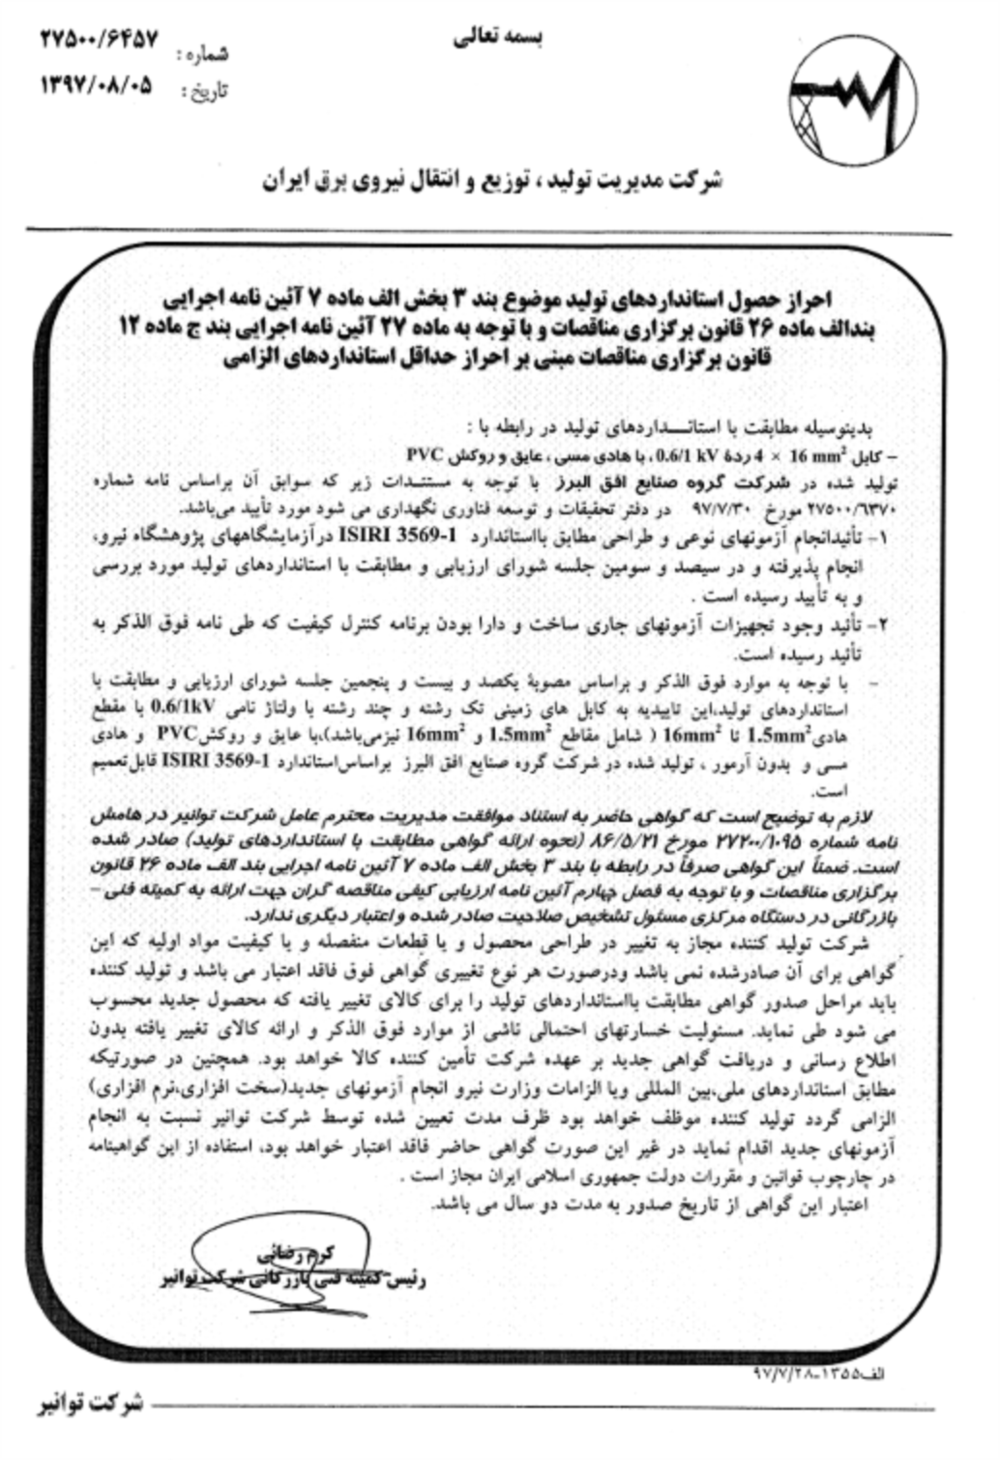 بسمه تعالی
شماره : ۲۷۵۰۰/۶۴۵۷
تاریخ : ۱۳۹۷/۰۸/۰۵
شرکت مدیریت تولید ، توزیع و انتقال نیروی برق ایران
احراز حصول استانداردهای تولید موضوع بند ۳ بخش الف ماده ۷ آئین نامه اجرایی
بندالف ماده ۲۶ قانون برگزاری مناقصات و با توجه به ماده ۲۷ آئین نامه اجرایی بند ج ماده ۱۲
قانون برگزاری مناقصات مبنی بر احراز حداقل استانداردهای الزامی
بدینوسیله مطابقت با استانــداردهای تولید در رابطه با :
– کابل 4 × 16 mm² ردۀ 0.6/1 kV ، با هادی مسی ، عایق و روکش PVC
تولید شده در شرکت گروه صنایع افق البرز با توجه به مستندات زیر که سوابق آن براساس نامه شماره
۲۷۵۰۰/۶۳۷۰ مورخ ۹۷/۷/۳۰ در دفتر تحقیقات و توسعه فناوری نگهداری می شود مورد تأیید می‌باشد.
۱– تأئیدانجام آزمونهای نوعی و طراحی مطابق بااستاندارد ISIRI 3569-1 درآزمایشگاههای پژوهشگاه نیرو،
انجام پذیرفته و در سیصد و سومین جلسه شورای ارزیابی و مطابقت با استانداردهای تولید مورد بررسی
و به تأیید رسیده است .
۲– تأئید وجود تجهیزات آزمونهای جاری ساخت و دارا بودن برنامه کنترل کیفیت که طی نامه فوق الذکر به
تأئید رسیده است.
– با توجه به موارد فوق الذکر و براساس مصوبۀ یکصد و بیست و پنجمین جلسه شورای ارزیابی و مطابقت با
استانداردهای تولید،این تاییدیه به کابل های زمینی تک رشته و چند رشته با ولتاژ نامی 0.6/1kV با مقطع
هادی1.5mm² تا 16mm² ( شامل مقاطع 1.5mm² و 16mm² نیزمی‌باشد)،با عایق و روکشPVC و هادی
مسی و بدون آرمور ، تولید شده در شرکت گروه صنایع افق البرز براساس‌استاندارد ISIRI 3569-1 قابل‌تعمیم
است.
لازم به توضیح است که گواهی حاضر به استناد موافقت مدیریت محترم عامل شرکت توانیر در هامش
نامه شماره ۲۷۲۰۰/۱۰۹۵ مورخ ۸۶/۵/۲۱ (نحوه ارائه گواهی مطابقت با استانداردهای تولید) صادر شده
است. ضمناً این گواهی صرفاً در رابطه با بند ۳ بخش الف ماده ۷ آئین نامه اجرایی بند الف ماده ۲۶ قانون
برگزاری مناقصات و با توجه به فصل چهارم آئین نامه ارزیابی کیفی مناقصه گران جهت ارائه به کمیته فنی –
بازرگانی در دستگاه مرکزی مسئول تشخیص صلاحیت صادر شده و اعتبار دیگری ندارد.
شرکت تولید کننده مجاز به تغییر در طراحی محصول و یا قطعات منفصله و یا کیفیت مواد اولیه که این
گواهی برای آن صادرشده نمی باشد ودرصورت هر نوع تغییری گواهی فوق فاقد اعتبار می باشد و تولید کننده
باید مراحل صدور گواهی مطابقت بااستانداردهای تولید را برای کالای تغییر یافته که محصول جدید محسوب
می شود طی نماید. مسئولیت خسارتهای احتمالی ناشی از موارد فوق الذکر و ارائه کالای تغییر یافته بدون
اطلاع رسانی و دریافت گواهی جدید بر عهده شرکت تأمین کننده کالا خواهد بود. همچنین در صورتیکه
مطابق استانداردهای ملی،بین المللی ویا الزامات وزارت نیرو انجام آزمونهای جدید(سخت افزاری،نرم افزاری)
الزامی گردد تولید کننده موظف خواهد بود ظرف مدت تعیین شده توسط شرکت توانیر نسبت به انجام
آزمونهای جدید اقدام نماید در غیر این صورت گواهی حاضر فاقد اعتبار خواهد بود، استفاده از این گواهینامه
در چارچوب قوانین و مقررات دولت جمهوری اسلامی ایران مجاز است .
اعتبار این گواهی از تاریخ صدور به مدت دو سال می باشد.
کرم رضائی
رئیس کمیته فنی بازرگانی شرکت توانیر
الف۱۳۵۵-۹۷/۷/۲۸
شرکت توانیر